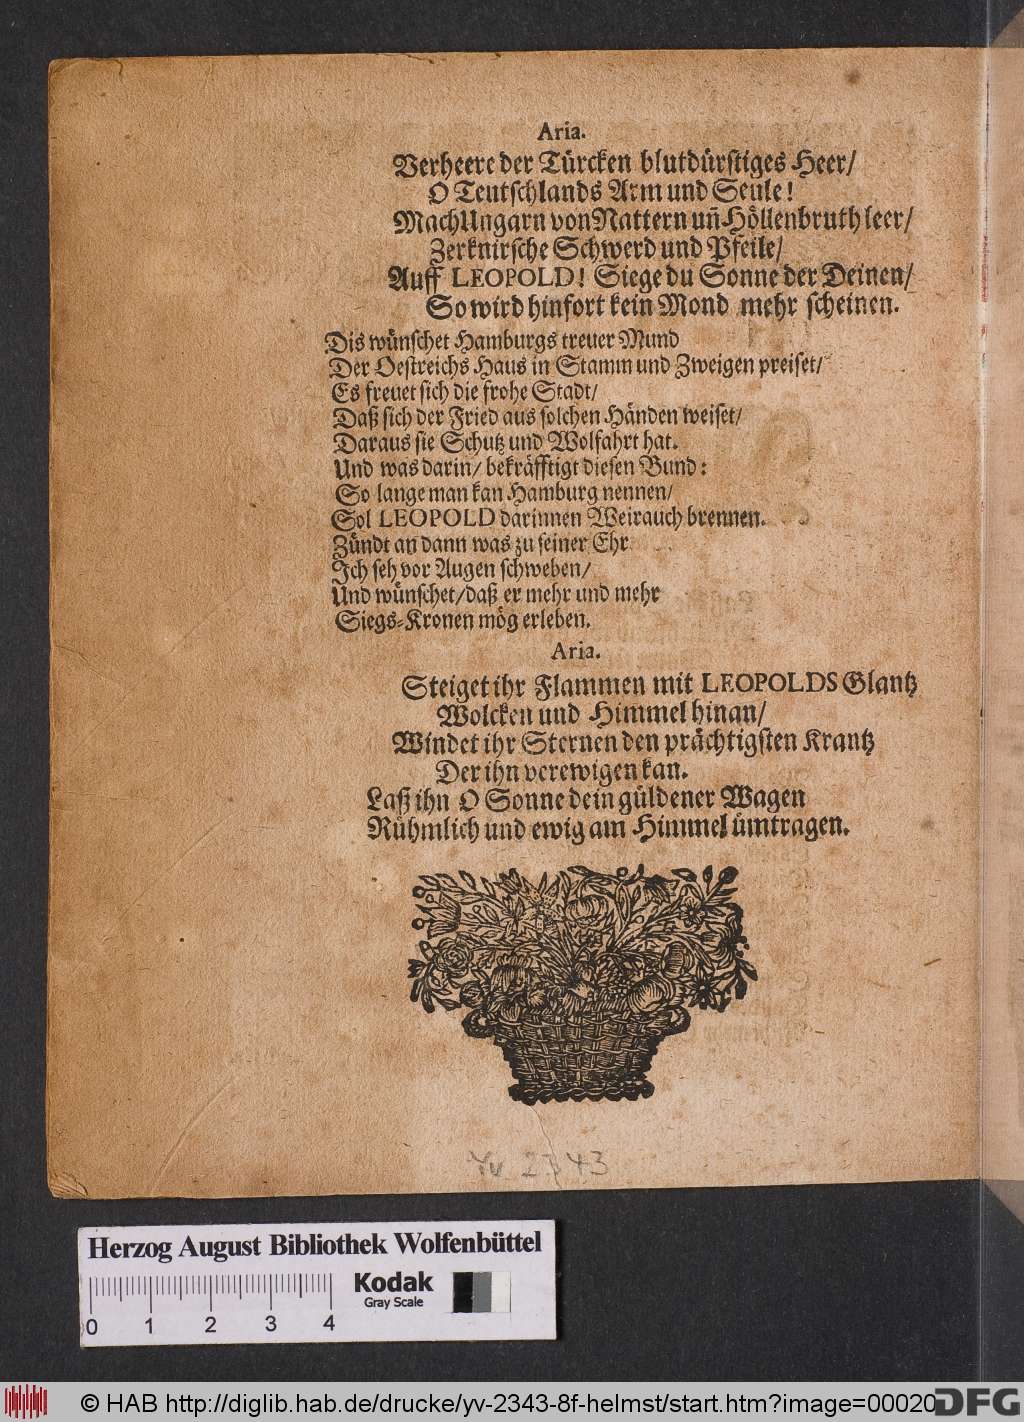 Aria.
Verheere der Türcken blutdürstiges Heer/
O Teutschlands Arm und Seule!
Mach Ungarn von Nattern uñ Höllenbruth leer/
Zerknirsche Schwerd und Pfeile/
Auff LEOPOLD! Siege du Sonne der Deinen/
So wird hinfort kein Mond mehr scheinen.
Dis wünschet Hamburgs treuer Mund
Der Oestreichs Haus in Stamm und Zweigen preiset/
Es freuet sich die frohe Stadt/
Daß sich der Fried aus solchen Händen weiset/
Daraus sie Schutz und Wolfahrt hat.
Und was darin/ bekräfftigt diesen Bund:
So lange man kan Hamburg nennen/
Sol LEOPOLD darinnen Weirauch brennen.
Zündt an dann was zu seiner Ehr
Ich seh vor Augen schweben/
Und wünschet/ daß er mehr und mehr
Siegs-Kronen mög erleben.
Aria.
Steiget ihr Flammen mit LEOPOLDS Glantz
Wolcken und Himmel hinan/
Windet ihr Sternen den prächtigsten Krantz
Der ihn verewigen kan.
Laß ihn O Sonne dein güldener Wagen
Rühmlich und ewig am Himmel ümtragen.
Yv 2343
Herzog August Bibliothek Wolfenbüttel
Kodak
Gray Scale
0 1 2 3 4
© HAB http://diglib.hab.de/drucke/yv-2343-8f-helmst/start.htm?image=00020
DFG